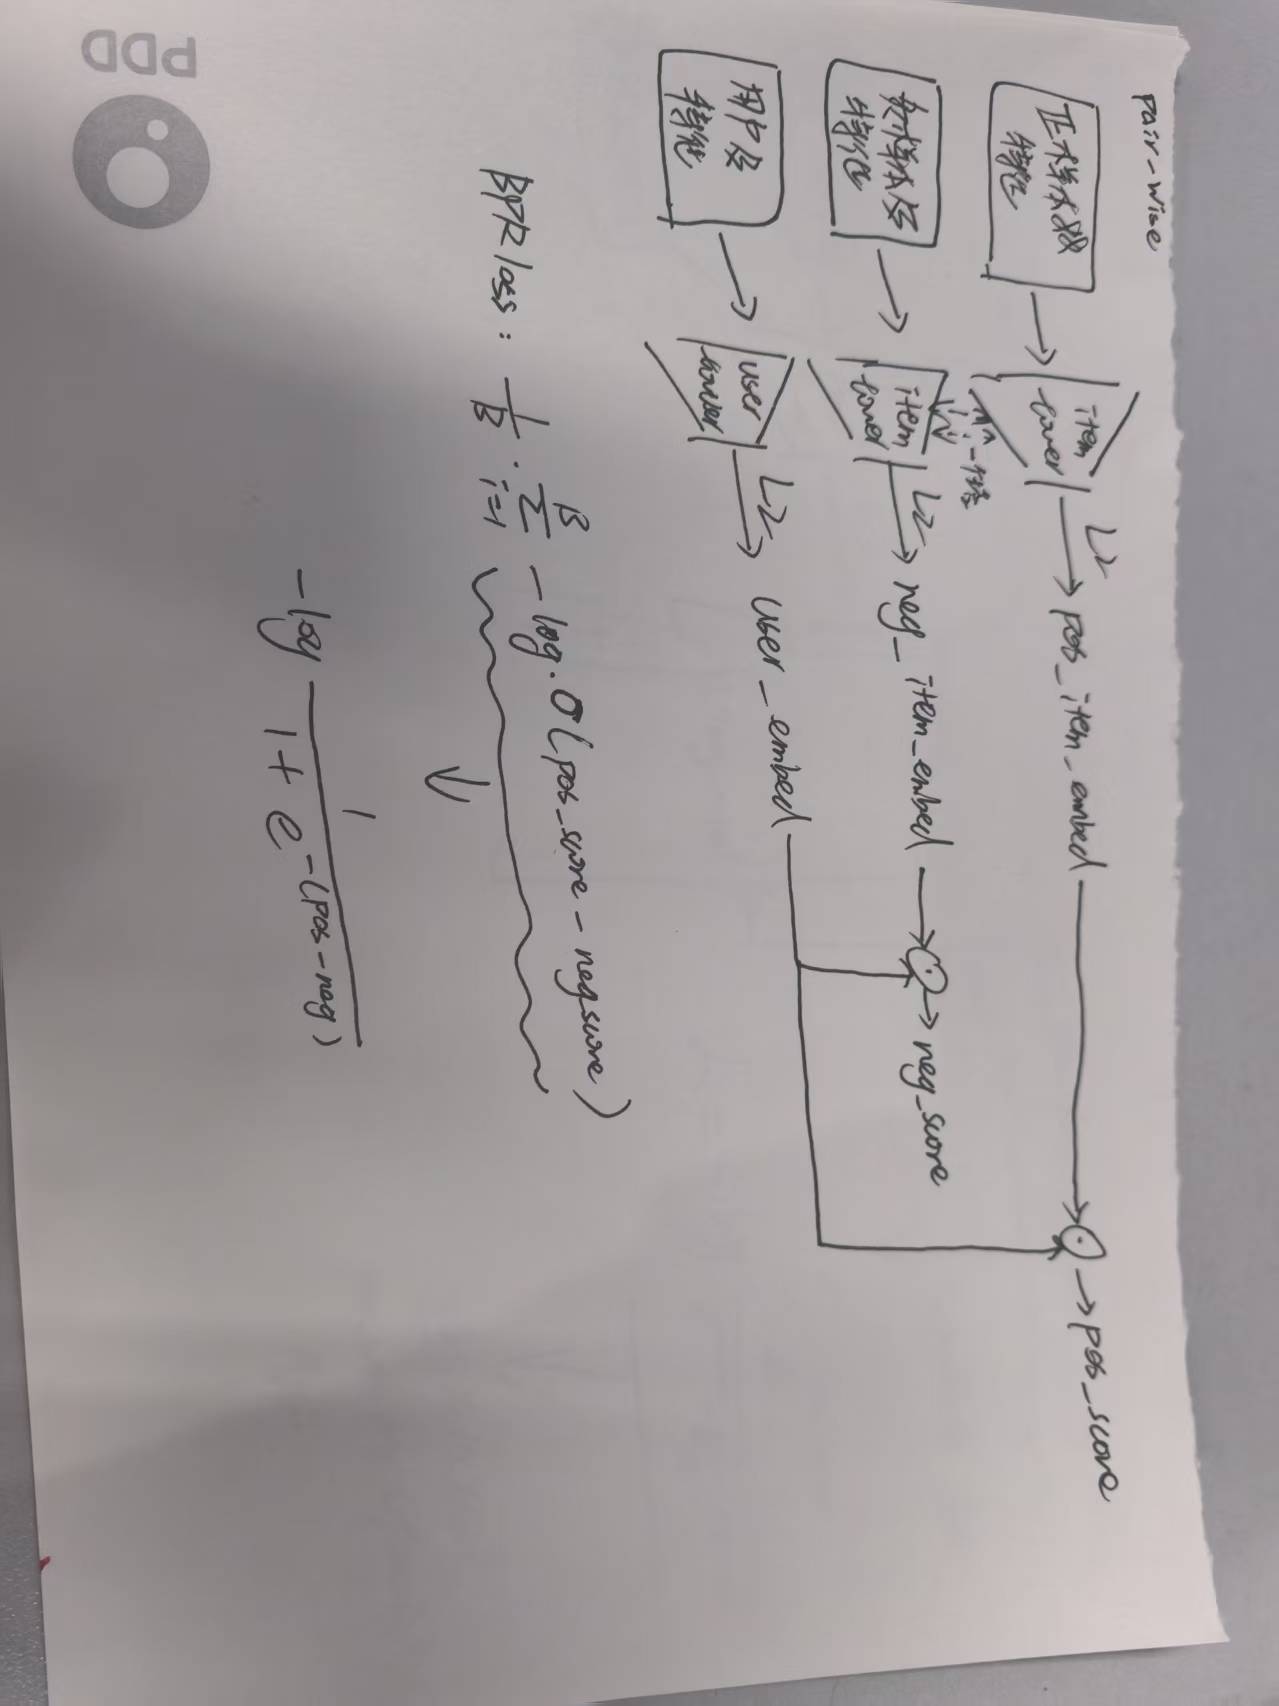 pair-wise
正样本及
特征
item
tower
L2
pos_item_embed
pos_score
一个塔
负样本及
特征
item
tower
L2
neg_item_embed
neg_score
用户及
特征
user
tower
L2
user_embed
BPR loss: 1/B · Σ_{i=1}^{B} -log·σ(pos_score - neg_score)
-log 1/(1+e^{-(pos-neg)})
PDD